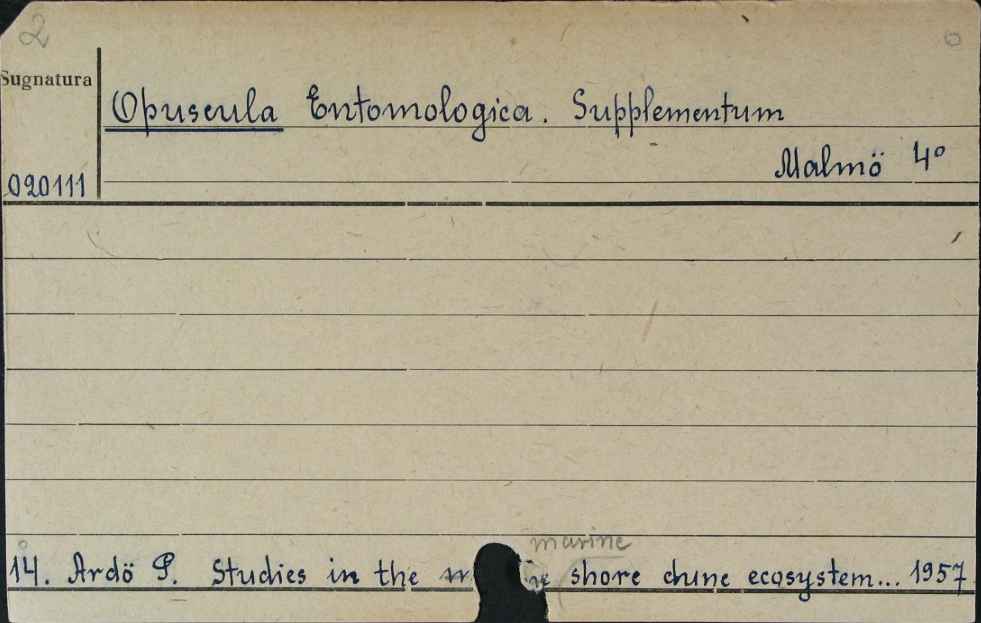 2
Sugnatura
Opuscula Entomologica. Supplementum
Malmö 4°
020111
marine
14. Ardö P. Studies in the shore dune ecosystem... 1957